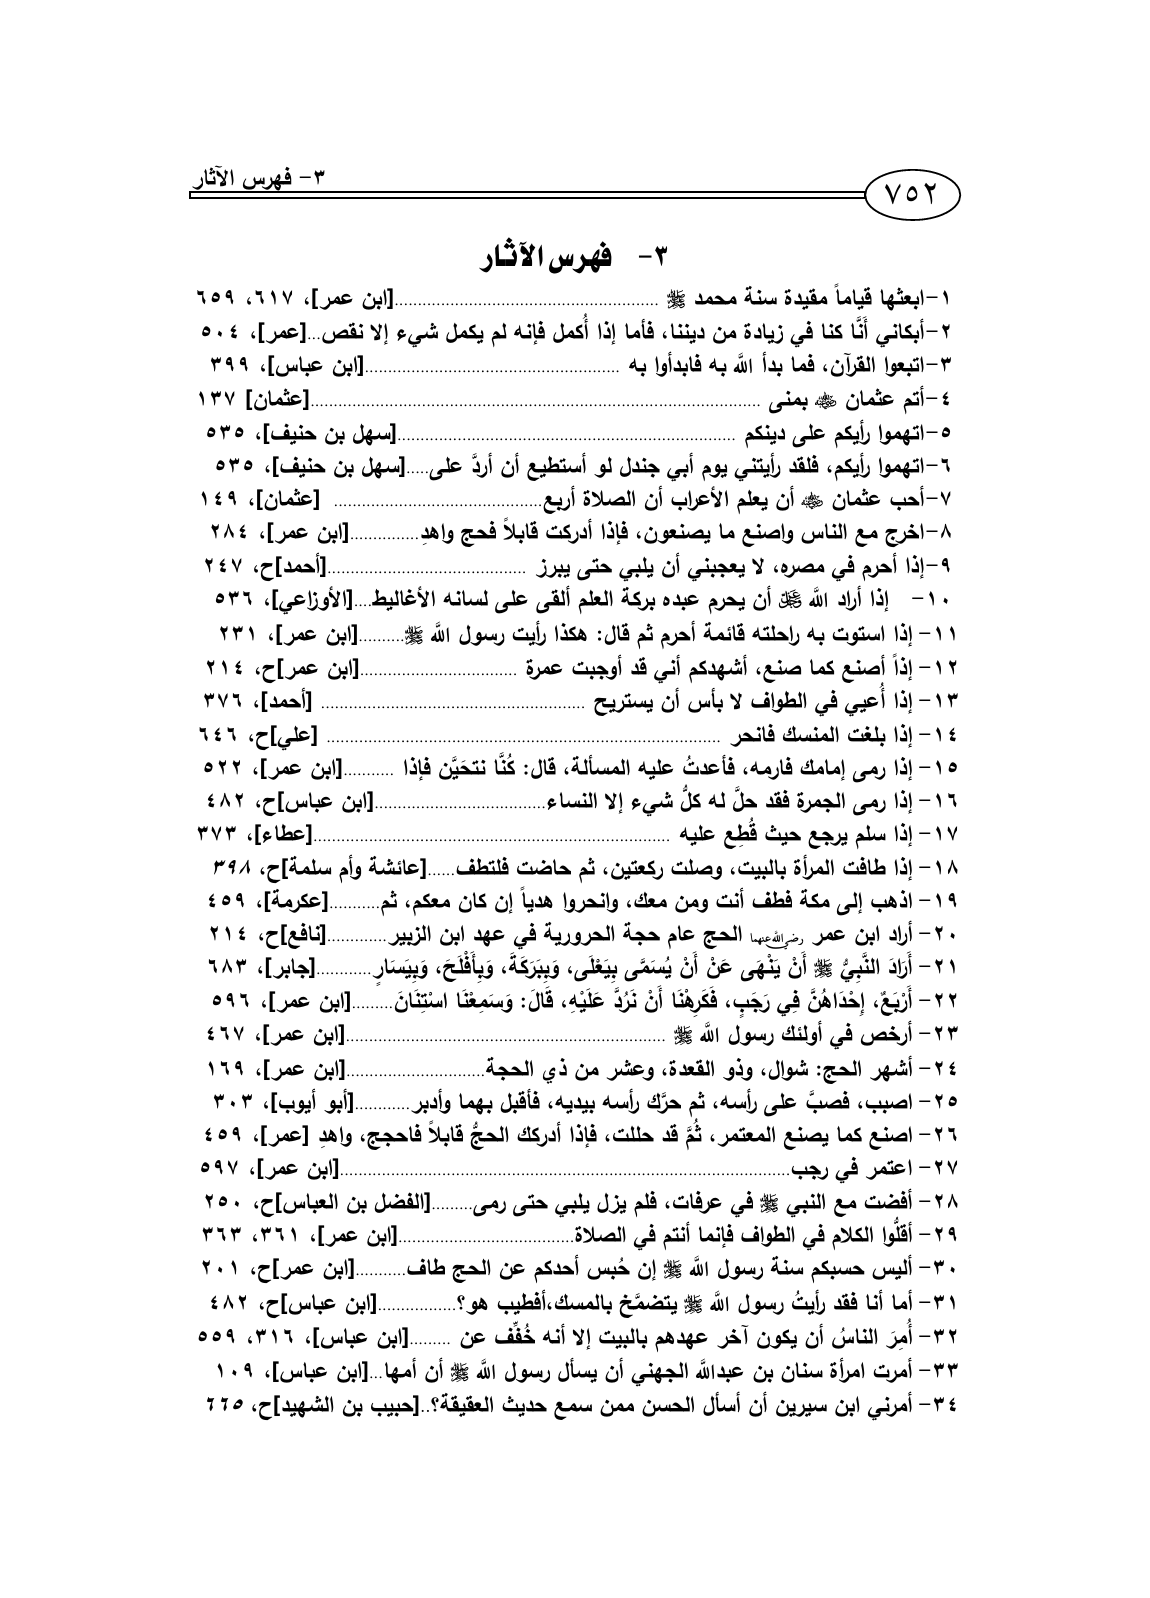 ٧٥٢
٣- فهرس الآثار
٣- فهرس الآثار
١-ابعثها قياماً مقيدة سنة محمد ﷺ ........................................................[ابن عمر]، ٦١٧، ٦٥٩
٢-أبكاني أَنَّا كنا في زيادة من ديننا، فأما إذا أُكمل فإنه لم يكمل شيء إلا نقص...[عمر]، ٥٠٤
٣-اتبعوا القرآن، فما بدأ الله به فابدأوا به ......................................................[ابن عباس]، ٣٩٩
٤-أتم عثمان ﷺ بمنى ................................................................................................[عثمان] ١٣٧
٥-اتهموا رأيكم على دينكم ........................................................................[سهل بن حنيف]، ٥٣٥
٦-اتهموا رأيكم، فلقد رأيتني يوم أبي جندل لو أستطيع أن أردَّ على.....[سهل بن حنيف]، ٥٣٥
٧-أحب عثمان ﷺ أن يعلم الأعراب أن الصلاة أربع............................................ [عثمان]، ١٤٩
٨-اخرج مع الناس واصنع ما يصنعون، فإذا أدركت قابلاً فحج واهدِ...............[ابن عمر]، ٢٨٤
٩-إذا أحرم في مصره، لا يعجبني أن يلبي حتى يبرز ..........................................[أحمد]ح، ٢٤٧
١٠- إذا أراد الله ﷻ أن يحرم عبده بركة العلم ألقى على لسانه الأغاليط....[الأوزاعي]، ٥٣٦
١١- إذا استوت به راحلته قائمة أحرم ثم قال: هكذا رأيت رسول الله ﷺ..........[ابن عمر]، ٢٣١
١٢- إذاً أصنع كما صنع، أشهدكم أني قد أوجبت عمرة .................................[ابن عمر]ح، ٢١٤
١٣- إذا أُعيي في الطواف لا بأس أن يستريح ........................................................ [أحمد]، ٣٧٦
١٤- إذا بلغت المنسك فانحر .................................................................................... [علي]ح، ٦٤٦
١٥- إذا رمى إمامك فارمه، فأعدتُ عليه المسألة، قال: كُنَّا نتحَيَّن فإذا ...........[ابن عمر]، ٥٢٢
١٦- إذا رمى الجمرة فقد حلَّ له كلُّ شيء إلا النساء.....................................[ابن عباس]ح، ٤٨٢
١٧- إذا سلم يرجع حيث قُطِع عليه ............................................................................[عطاء]، ٣٧٣
١٨- إذا طافت المرأة بالبيت، وصلت ركعتين، ثم حاضت فلتطف......[عائشة وأم سلمة]ح، ٣٩٨
١٩- اذهب إلى مكة فطف أنت ومن معك، وانحروا هدياً إن كان معكم، ثم...........[عكرمة]، ٤٥٩
٢٠- أراد ابن عمر رضي الله عنهما الحج عام حجة الحرورية في عهد ابن الزبير.............[نافع]ح، ٢١٤
٢١- أَرَادَ النَّبِيُّ ﷺ أَنْ يَنْهَى عَنْ أَنْ يُسَمَّى بِيَعْلَى، وَبِبَرَكَةَ، وَبِأَفْلَحَ، وَبِيَسَارٍ............[جابر]، ٦٨٣
٢٢- أَرْبَعٌ، إِحْدَاهُنَّ فِي رَجَبٍ، فَكَرِهْنَا أَنْ نَرُدَّ عَلَيْهِ، قَالَ: وَسَمِعْنَا اسْتِنَانَ.........[ابن عمر]، ٥٩٦
٢٣- أرخص في أولئك رسول الله ﷺ ....................................................................[ابن عمر]، ٤٦٧
٢٤- أشهر الحج: شوال، وذو القعدة، وعشر من ذي الحجة..............................[ابن عمر]، ١٦٩
٢٥- اصبب، فصبَّ على رأسه، ثم حرَّك رأسه بيديه، فأقبل بهما وأدبر............[أبو أيوب]، ٣٠٣
٢٦- اصنع كما يصنع المعتمر، ثُمَّ قد حللت، فإذا أدركك الحجُّ قابلاً فاحجج، واهدِ [عمر]، ٤٥٩
٢٧- اعتمر في رجب................................................................................................[ابن عمر]، ٥٩٧
٢٨- أفضت مع النبي ﷺ في عرفات، فلم يزل يلبي حتى رمى.........[الفضل بن العباس]ح، ٢٥٠
٢٩- أقلُّوا الكلام في الطواف فإنما أنتم في الصلاة......................................[ابن عمر]، ٣٦١، ٣٦٣
٣٠- أليس حسبكم سنة رسول الله ﷺ إن حُبس أحدكم عن الحج طاف...........[ابن عمر]ح، ٢٠١
٣١- أما أنا فقد رأيتُ رسول الله ﷺ يتضمَّخ بالمسك،أفطيب هو؟.................[ابن عباس]ح، ٤٨٢
٣٢- أُمِرَ الناسُ أن يكون آخر عهدهم بالبيت إلا أنه خُفِّف عن .........[ابن عباس]، ٣١٦، ٥٥٩
٣٣- أمرت امرأة سنان بن عبدالله الجهني أن يسأل رسول الله ﷺ أن أمها...[ابن عباس]، ١٠٩
٣٤- أمرني ابن سيرين أن أسأل الحسن ممن سمع حديث العقيقة؟..[حبيب بن الشهيد]ح، ٦٦٥